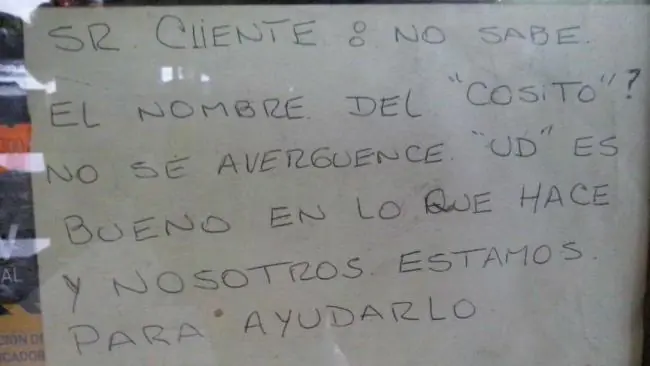 SR. CLIENTE : NO SABE.
EL NOMBRE. DEL "COSITO"?
NO SE AVERGUENCE. "UD" ES
BUENO EN LO QUE HACE
Y NOSOTROS. ESTAMOS.
PARA AYUDARLO
AL
CION DE
ICADOR